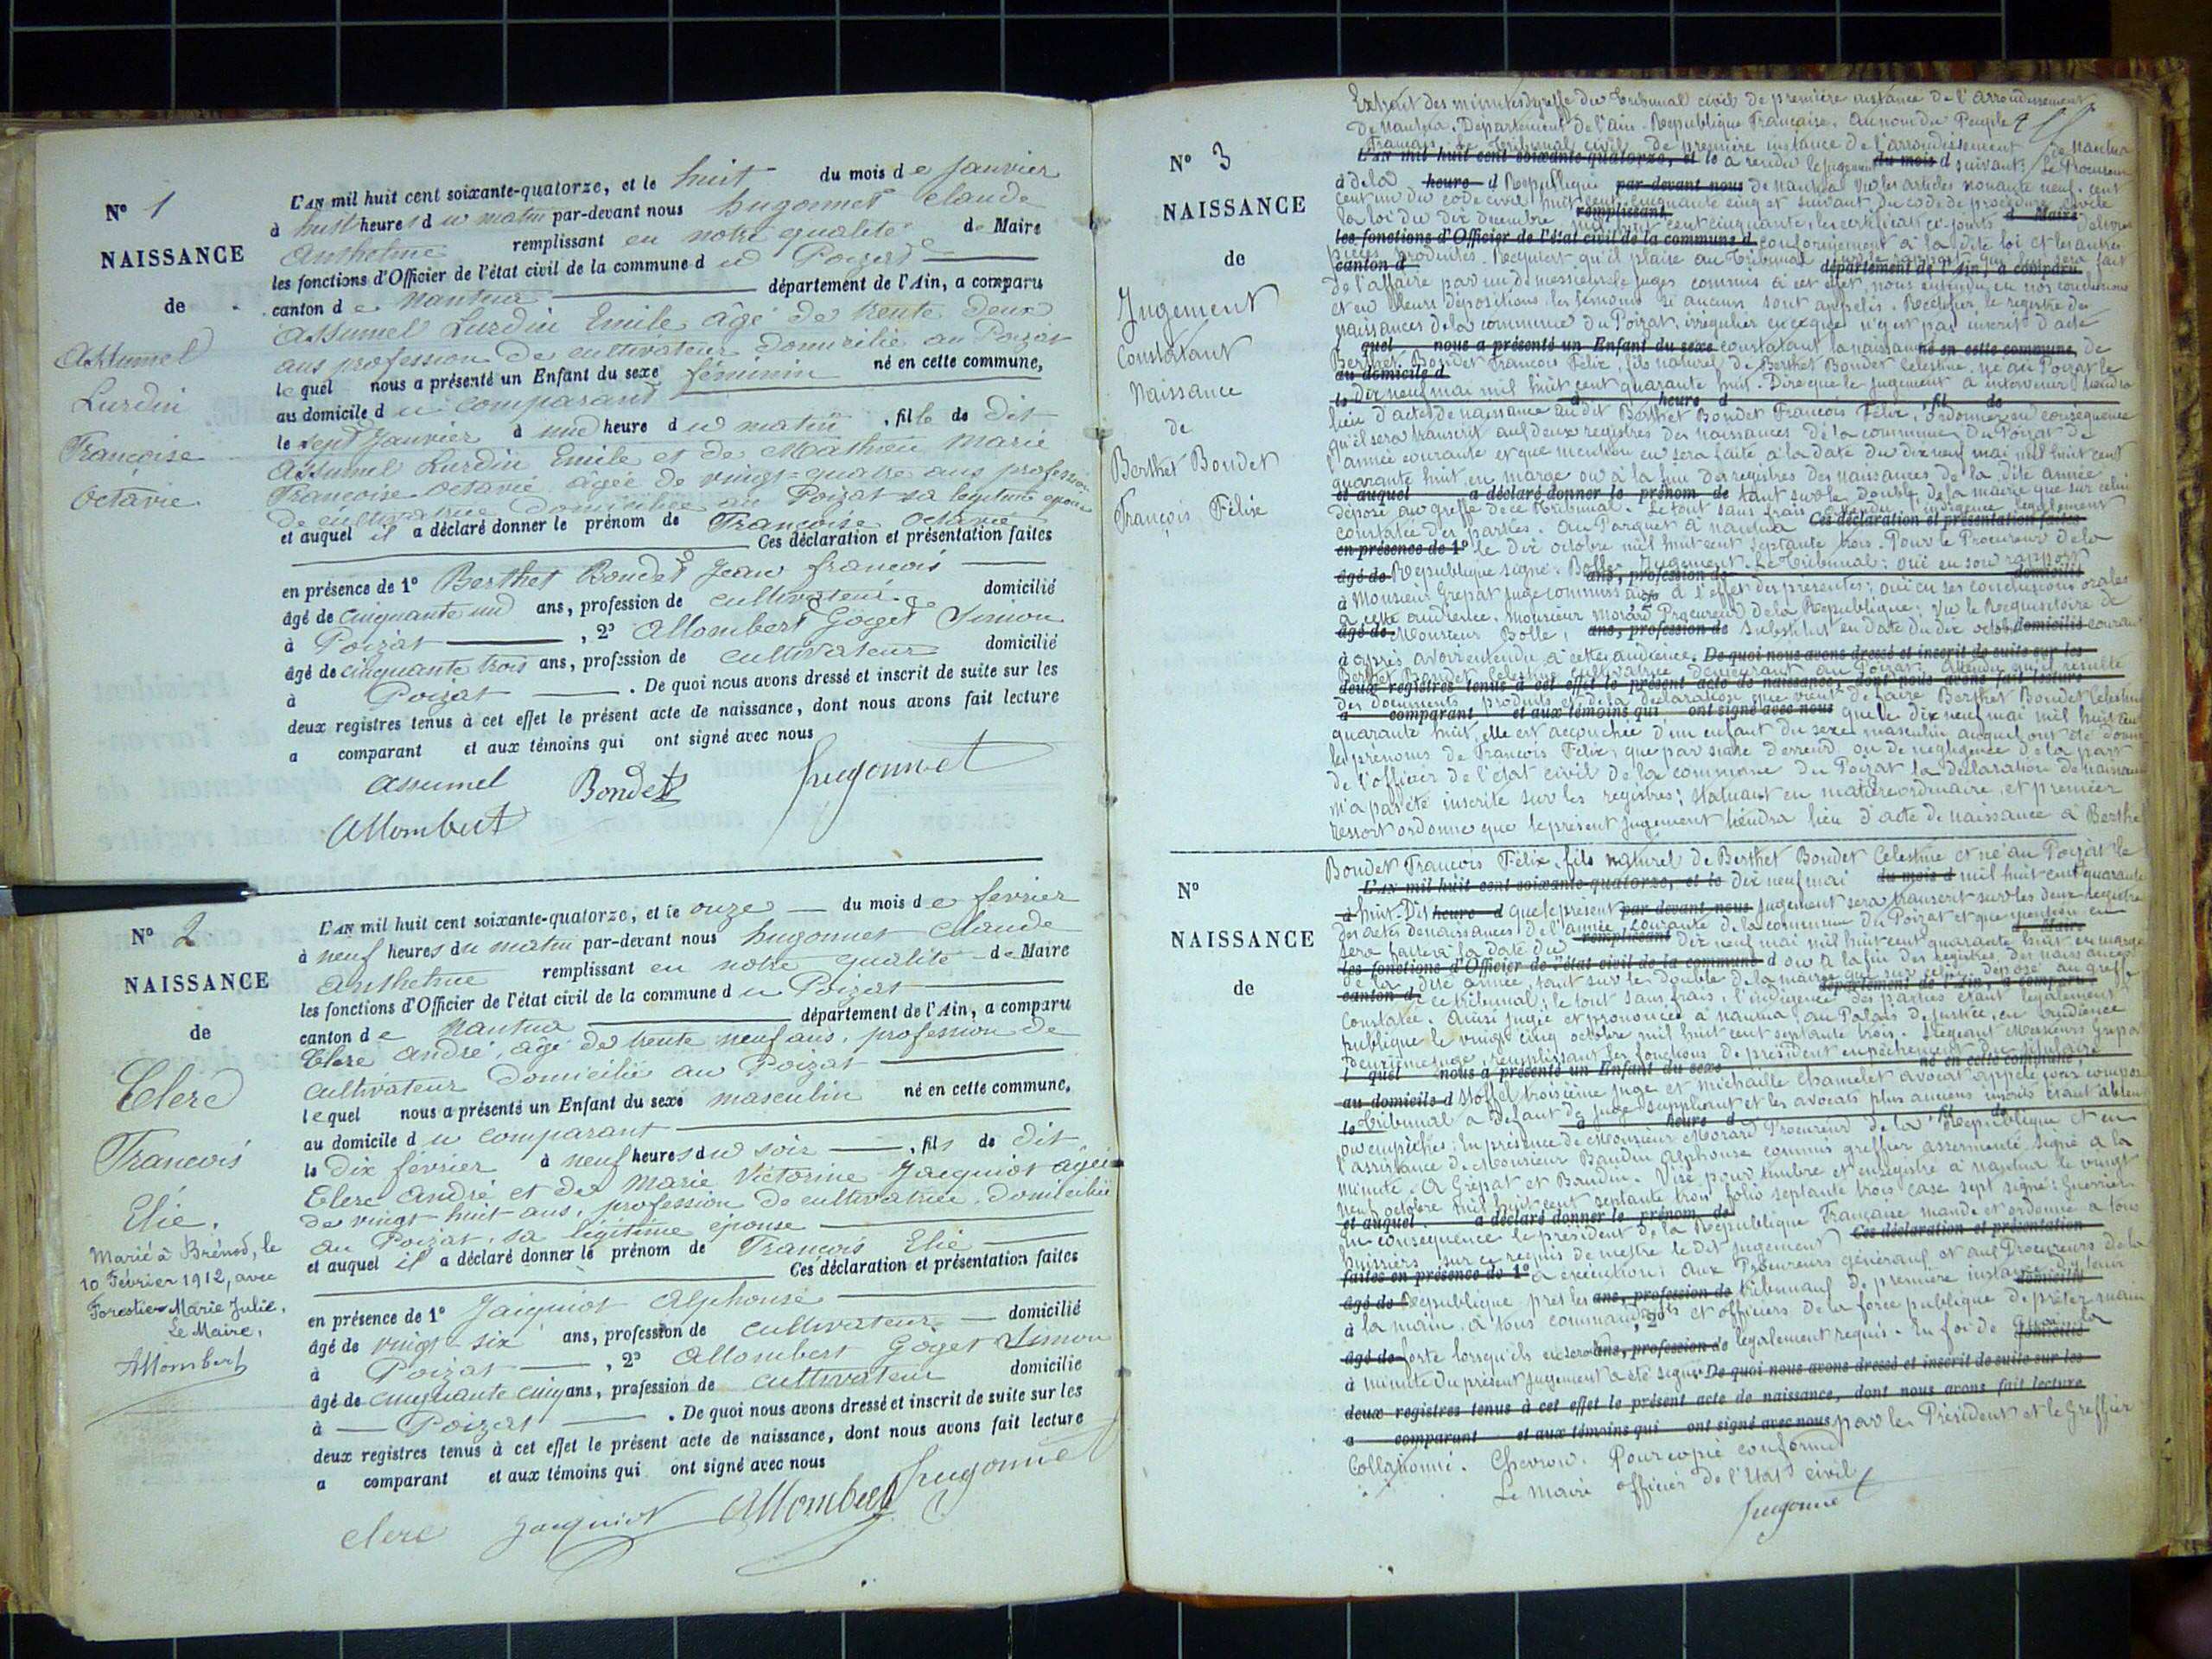 N° 1
NAISSANCE
de
Assumel
Lurdin
Françoise
Octavie
L'AN mil huit cent soixante-quatorze, et le huit du mois de Janvier
à huit heures du matin par-devant nous hugonnet Claude
Anthelme remplissant en notre qualité de Maire
les fonctions d'Officier de l'état civil de la commune du Poizat
canton de Nantua département de l'Ain, a comparu
Assumel Lurdin Emile âgé de trente deux
ans profession de cultivateur domicilié au Poizat
lequel nous a présenté un Enfant du sexe féminin né en cette commune,
au domicile du comparant
le sept Janvier à une heure du matin, fille de dit
Assumel Lurdin Emile et de Mathieu Marie
Françoise Octavie âgée de vingt-quatre ans profession
de cultivatrice domiciliée au Poizat sa légitime épouse
et auquel il a déclaré donner le prénom de Françoise Octavie
Ces déclaration et présentation faites
en présence de 1° Berthet Bondet Jean françois
âgé de cinquante un ans, profession de cultivateur domicilié
à Poizat, 2° Allombert Goget Simon
âgé de cinquante trois ans, profession de cultivateur domicilié
à Poizat. De quoi nous avons dressé et inscrit de suite sur les
deux registres tenus à cet effet le présent acte de naissance, dont nous avons fait lecture
a comparant et aux témoins qui ont signé avec nous
Assumel Bondet hugonnet
Allombert
N° 2
NAISSANCE
de
Clerc
François
Elie.
Marié à Brénod, le
10 Février 1912, avec
Forestier Marie Julie.
Le Maire,
Allombert
L'AN mil huit cent soixante-quatorze, et le onze du mois de fevrier
à neuf heures du matin par-devant nous hugonnet Claude
Anthelme remplissant en notre qualité de Maire
les fonctions d'Officier de l'état civil de la commune du Poizat
canton de Nantua département de l'Ain, a comparu
Clerc André, âgé de trente neuf ans, profession de
cultivateur domicilié au Poizat
lequel nous a présenté un Enfant du sexe masculin né en cette commune,
au domicile du comparant
le dix février à neuf heures du soir, fils de dit
Clerc André et de Marie Victorine Jacquiot âgée
de vingt huit ans, profession de cultivatrice, domiciliée
au Poizat, sa légitime épouse
et auquel il a déclaré donner le prénom de François Elie
Ces déclaration et présentation faites
en présence de 1° Jaiquiot Alphonse
âgé de vingt-six ans, profession de cultivateur domicilié
à Poizat, 2° Allombert Goget Simon
âgé de cinquante cinq ans, profession de cultivateur domicilié
à Poizat. De quoi nous avons dressé et inscrit de suite sur les
deux registres tenus à cet effet le présent acte de naissance, dont nous avons fait lecture
a comparant et aux témoins qui ont signé avec nous
clerc Jacquiot Allombert hugonnet
N° 3
NAISSANCE
de
Jugement
Constatant
Naissance
de
Berthet Bondet
François Félix
Extrait des minutes du greffe du Tribunal civil de première instance de l'arrondissement
de Nantua. Département de l'Ain. République Française. Au nom du Peuple
Français. Le Tribunal civil de première instance de l'arrondissement de Nantua
L'AN mil huit cent soixante-quatorze, et le a rendu le jugement du mois d suivant: Le Procureur
à de la heure d République par-devant nous de Nantua Vu les articles nonante neuf, cent
cent un du code civil huit cent cinquante cinq et suivant du code de procédure civile
la loi du dix décembre remplissant mil huit cent cinquante, les certificats ci-joints d Maire délivrés
les fonctions d'Officier de l'état civil de la commune d conformément à la dite loi et les autres
pièces produites. Requiert qu'il plaise au Tribunal, sur le rapport qui lui sera fait
canton d département de l'Ain, a comparu
de l'affaire par un de messieurs les juges commis à cet effet, nous entendu en nos conclusions
et en leurs dépositions les témoins si aucuns sont appelés. Rectifier le registre des
naissances de la commune du Poizat, irrégulier en ce que n'y est pas inscrit d'acte
l quel nous a présenté un Enfant du sexe constatant la naissance né en cette commune, de
Berthet Bondet François Félix, fils naturel de Berthet Bondet Célestine, né au Poizat le
au domicile d
le dix neuf mai mil huit cent quarante huit. Dire que le jugement à intervenir tiendra
à heure d , fil de
lieu d'acte de naissance au dit Berthet Bondet François Félix, ordonner en conséquence
qu'il sera transcrit aux deux registres des naissances de la commune du Poizat de
l'année courante et que mention en sera faite à la date du dix neuf mai mil huit cent
quarante huit en marge ou à la fin des registres des naissances de la dite année
et auquel a déclaré donner le prénom de tant sur le double de la mairie que sur celui
déposé au greffe de ce Tribunal. Le tout sans frais attendu l'indigence légalement
constatée des parties. Au Parquet à Nantua Ces déclaration et présentation faites
en présence de 1° le dix octobre mil huit cent septante trois. Pour le Procureur de la
âgé de République signé: Bolle. Jugement. Le Tribunal: ouï en son rapport
ans, profession de domicilié
à Monsieur Grépat juge commissaire à l'effet des présentes; ouï en ses conclusions orales
à cette audience, Monsieur Morard Procureur de la République; Vu le Requisitoire de
âgé de Monsieur Bolle, ans, profession de Substitut en date du dix octobre domicilié courant
à après avoir entendu à cette audience, De quoi nous avons dressé et inscrit de suite sur les
Berthet Bondet Célestine cultivatrice demeurant au Poizat; Attendu qu'il résulte
deux registres tenus à cet effet le présent acte de naissance, dont nous avons fait lecture
des documents produits et de la déclaration que vient de faire Berthet Bondet Célestine
a comparant et aux témoins qui ont signé avec nous que le dix neuf mai mil huit cent
quarante huit, elle est accouchée d'un enfant du sexe masculin auquel ont été donné
les prénoms de François Félix; que par suite d'erreur ou de négligence de la part
de l'officier de l'état civil de la commune du Poizat la déclaration de naissance
n'a pas été inscrite sur les registres; Statuant en matière ordinaire, et premier
ressort ordonne que le présent jugement tiendra lieu d'acte de naissance à Berthet
N°
NAISSANCE
de
Bondet François Félix, fils naturel de Berthet Bondet Célestine et né au Poizat le
L'AN mil huit cent soixante-quatorze, et le dix neuf mai du mois d mil huit cent quarante
à huit. Dit heure d que le présent par-devant nous jugement sera transcrit sur les deux registres
des actes de naissances de l'année courante de la commune du Poizat et que mention en
sera faite à la date du remplissant dix neuf mai mil huit cent quarante huit en marge
les fonctions d'Officier de l'état civil de la commune d ou à la fin des registres des naissances
de la dite année, tant sur le double de la mairie que sur celui déposé au greffe
canton d de ce tribunal; le tout sans frais, l'indigence des parties étant légalement
département de l'Ain, a comparu
constatée. Ainsi jugé et prononcé à Nantua, au Palais de justice, en audience
publique le vingt cinq octobre mil huit cent septante trois. Siégeant Messieurs Grépat
Deuxième juge, remplissant les fonctions de président empêchement du titulaire
l quel nous a présenté un Enfant du sexe né en cette commune,
au domicile d Stoffel troisième juge et Michaille Chamelet avocat appelé pour composer
le tribunal à défaut de juge suppléant et les avocats plus anciens inscrits étant absents
à heure d fil de
ou empêchés; En présence de Monsieur Morard Procureur de la République et en
l'assistance de Monsieur Baudin Alphonse commis greffier assermenté. Signé à la
minute. A Grépat et Baudin. Visé pour timbre et enregistré à Nantua le vingt
neuf octobre mil huit cent septante trois folio septante trois case sept signé: Guerrier
et auquel a déclaré donner le prénom de
En conséquence le président de la République Française mande et ordonne à tous
huissiers sur ce requis de mettre le dit jugement Ces déclaration et présentation
faites en présence de 1° à exécution; Aux Procureurs généraux et aux Procureurs de la
âgé de République près les ans, profession de tribunaux de première instance d'y tenir domicilié
à la main, à tous commandants et officiers de la force publique de prêter main
âgé de forte lorsqu'ils en seront ans, profession de légalement requis. En foi de quoi domicilié la
à minute du présent jugement a été signée De quoi nous avons dressé et inscrit de suite sur les
deux registres tenus à cet effet le présent acte de naissance, dont nous avons fait lecture
a comparant et aux témoins qui ont signé avec nous par le Président et le Greffier
Collationné. Chevron. Pour copie conforme
Le Maire officier de l'Etat civil
hugonnet